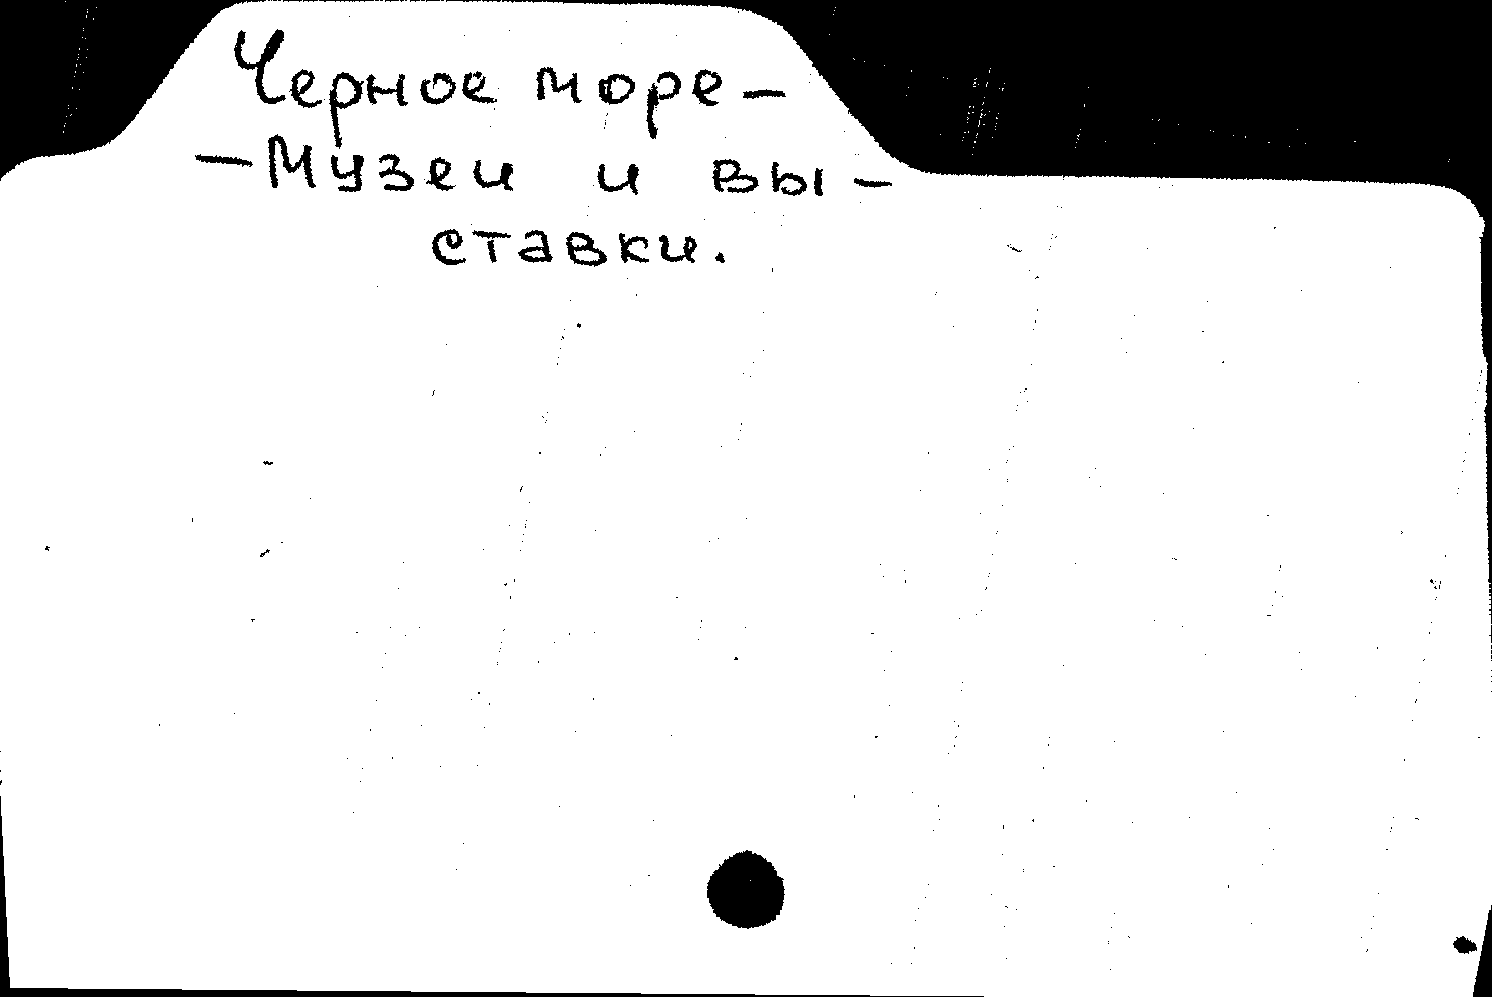 Черное море –
– Музеи и вы-
ставки.